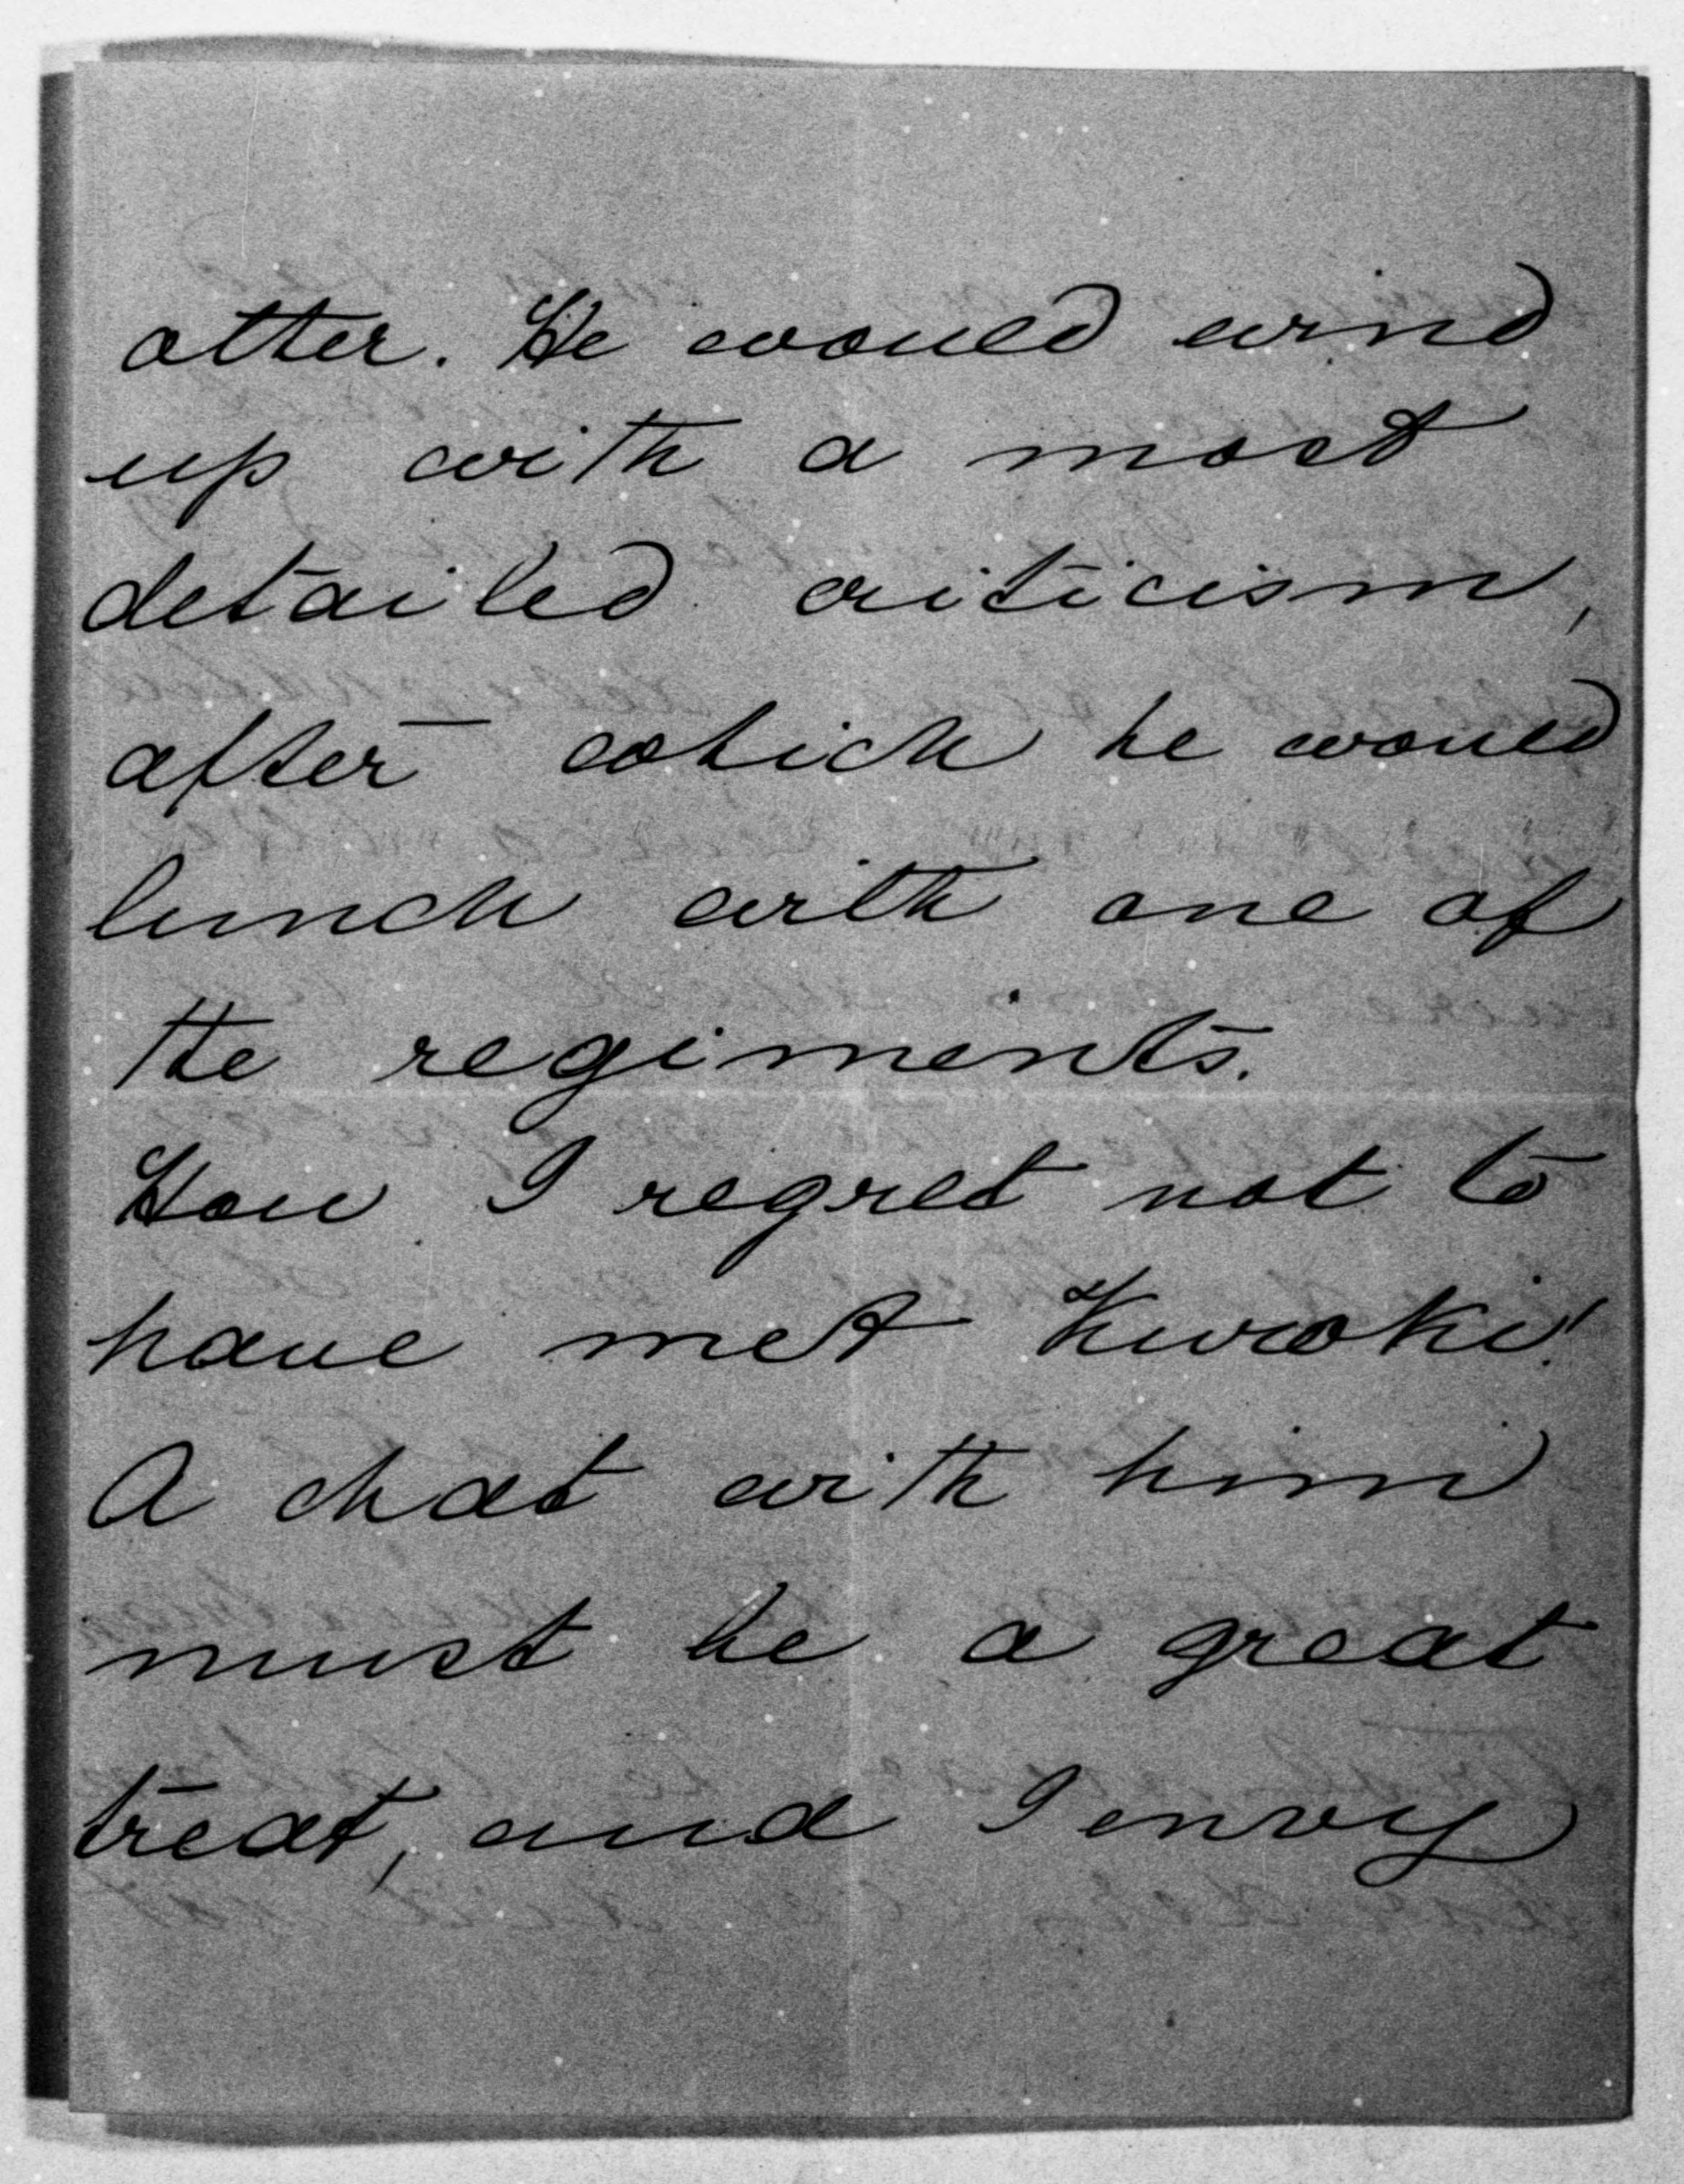 otter. He would wind
up with a most
detailed criticism,
after which he would
lunch with one of
the regiments.
How I regret not to
have met Kuroki!
A chat with him
must be a great
treat, and I envy